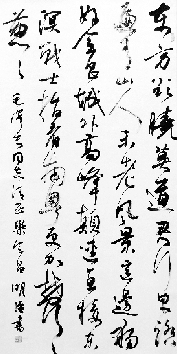 东方欲晓莫道君行早踏
遍青山人未老风景这边独
好会昌城外高峰颠连直接东
溟战士指看南粤更加郁郁
葱々毛泽东同志清平乐会昌